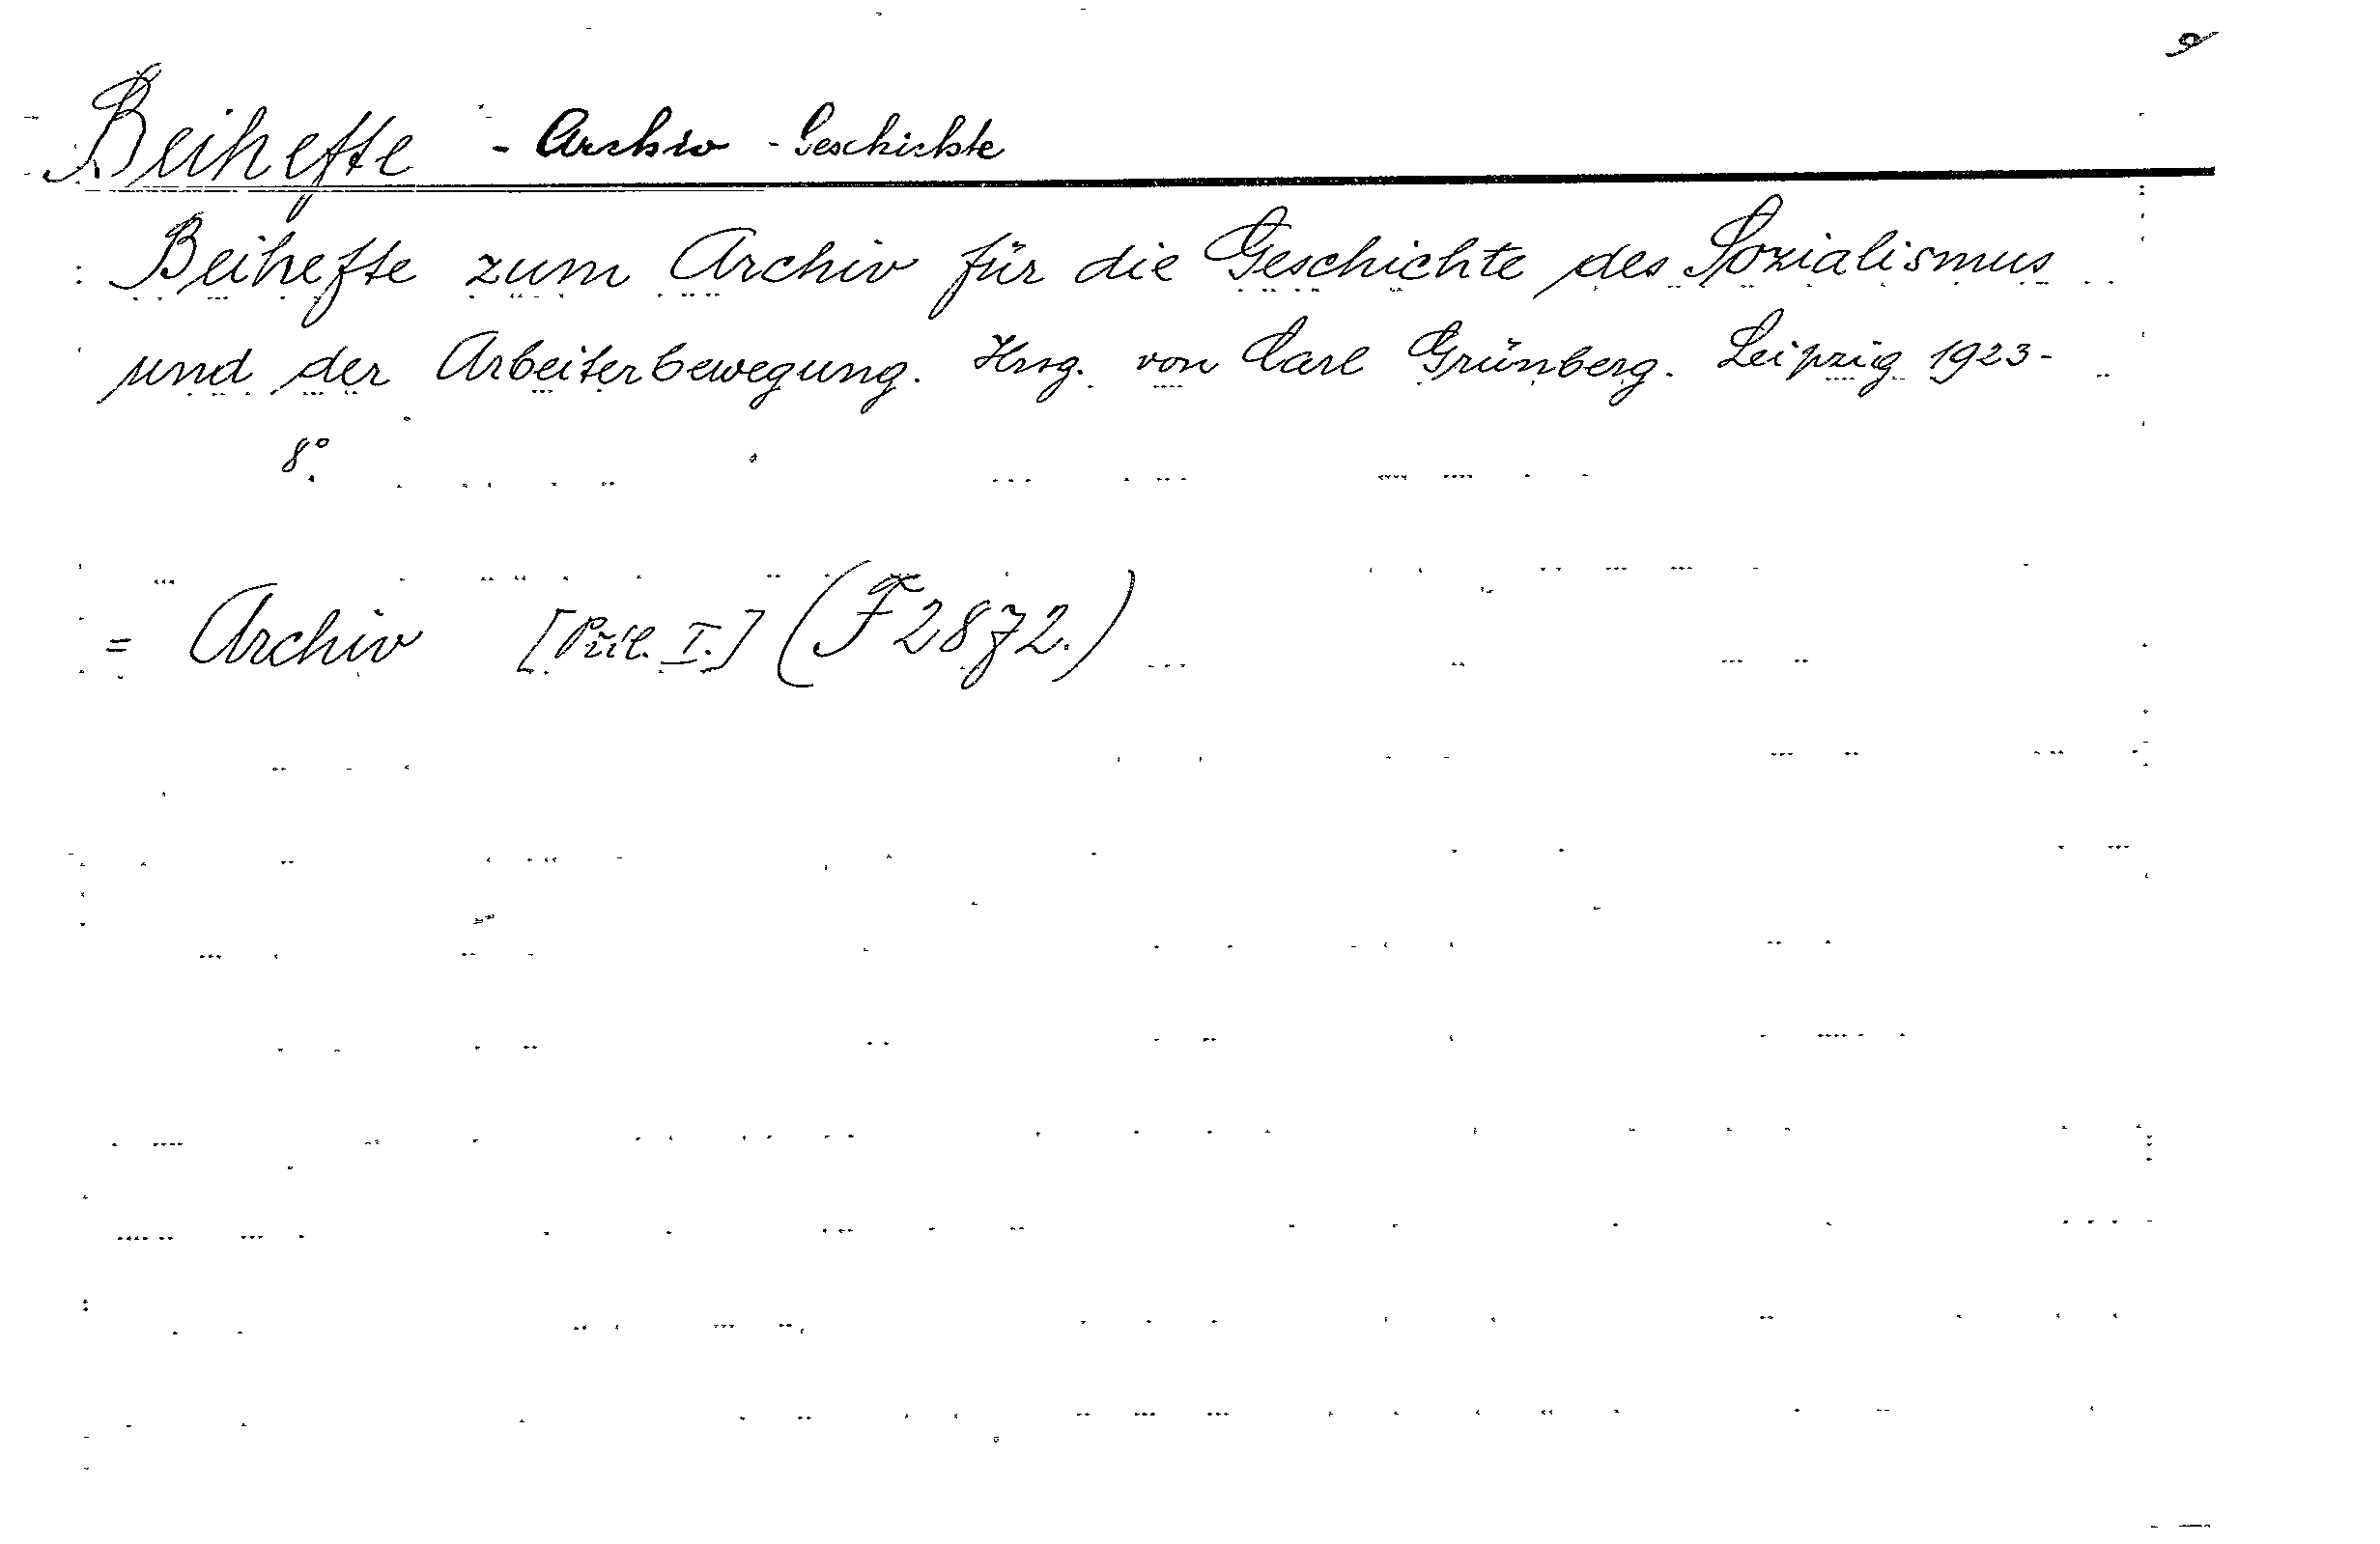 Beihefte - Archiv - Geschichte
Beihefte zum Archiv für die Geschichte des Sozialismus
und der Arbeiterbewegung. Hrsg. von Carl Grünberg. Leipzig 1923-
8°.
= Archiv [Příl. I.] (F 2872.)